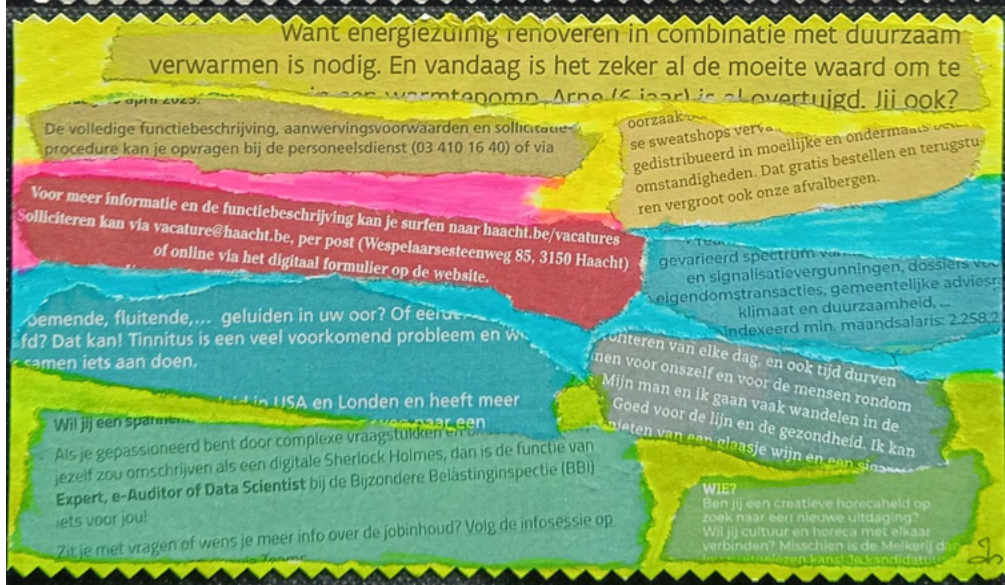 Want energiezuinig renoveren in combinatie met duurzaam
verwarmen is nodig. En vandaag is het zeker al de moeite waard om te
warmtepomp. Arno (6 jaar) is al overtuigd. Jij ook?
april 2023.
De volledige functiebeschrijving, aanwervingsvoorwaarden en sollicitatie-
procedure kan je opvragen bij de personeelsdienst (03 410 16 40) of via
oorzaak
se sweatshops
gedistribueerd in moeilijke en ondermaats
omstandigheden. Dat gratis bestellen en terugstu
ren vergroot ook onze afvalbergen.
Voor meer informatie en de functiebeschrijving kan je surfen naar haacht.be/vacatures
Solliciteren kan via vacature@haacht.be, per post (Wespelaarsesteenweg 85, 3150 Haacht)
of online via het digitaal formulier op de website.
gevarieerd spectrum
en signalisatievergunningen, dossiers
eigendomstransacties, gemeentelijke
klimaat en duurzaamheid, ...
indexeerd min. maandsalaris: 2.258,2
oemende, fluitende,... geluiden in uw oor? Of
fd? Dat kan! Tinnitus is een veel voorkomend probleem en
samen iets aan doen.
in USA en Londen en heeft meer
naar een
oriteren van elke dag, en ook tijd durven
nen voor onszelf en voor de mensen rondom
Mijn man en ik gaan vaak wandelen in de
Goed voor de lijn en de gezondheid. Ik kan
nieten van een glaasje wijn en een
Wil jij een
Als je gepassioneerd bent door complexe vraagstukken en
jezelf zou omschrijven als een digitale Sherlock Holmes, dan is de functie van
Expert, e-Auditor of Data Scientist bij de Bijzondere Belastinginspectie (BBI)
iets voor jou!
Zit je met vragen of wens je meer info over de jobinhoud? Volg de infosessie op
WIE?
Ben jij een creatieve horecaheld op
zoek naar een nieuwe uitdaging?
Wil jij cultuur en horeca met elkaar
verbinden? Misschien is de Melkerij dan